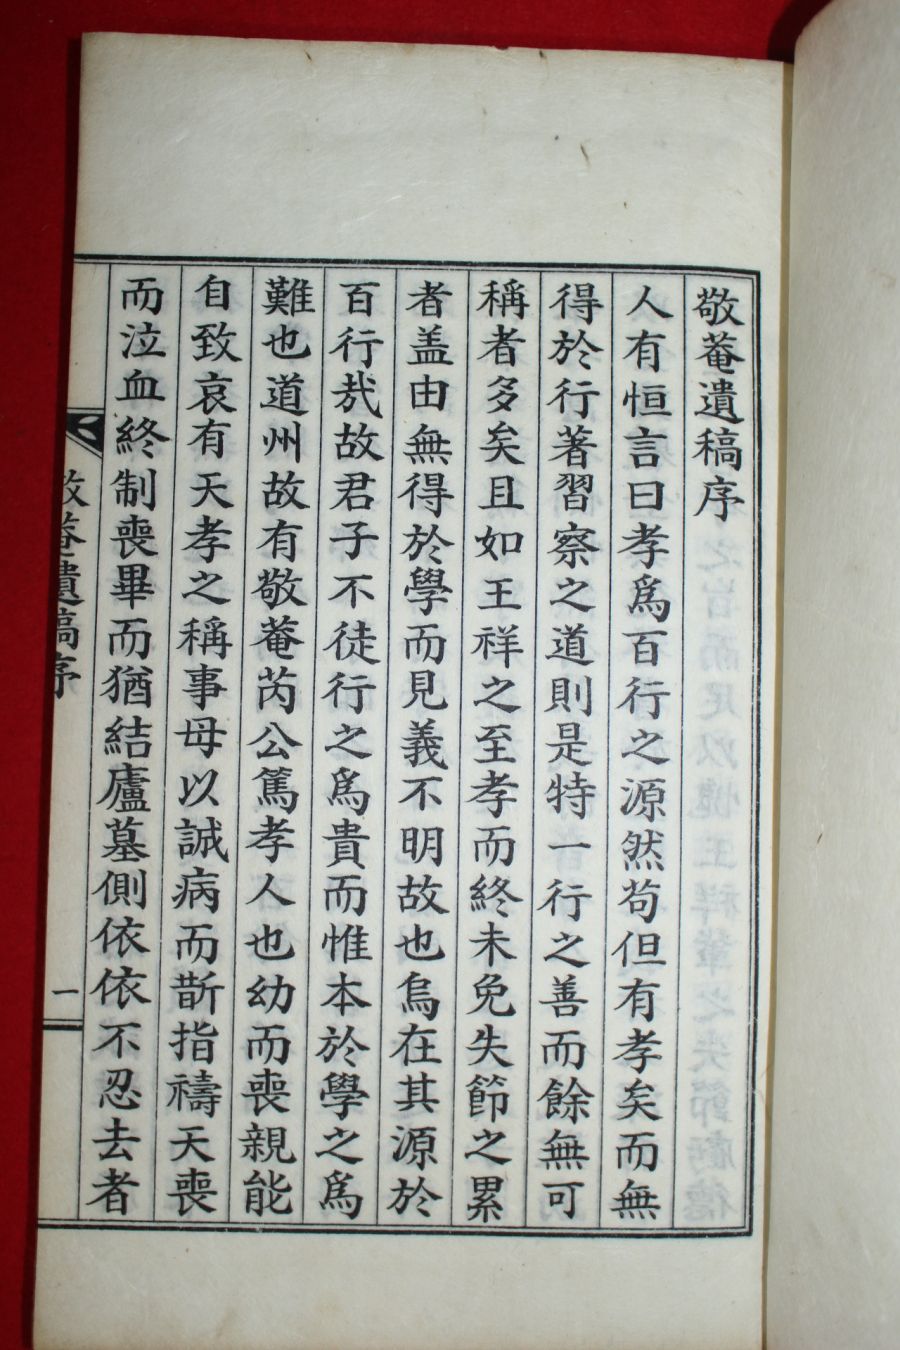 敬菴遺稿序
人有恒言曰孝爲百行之源然苟但有孝矣而無
得於行著習察之道則是特一行之善而餘無可
稱者多矣且如王祥之至孝而終未免失節之累
者盖由無得於學而見義不明故也烏在其源於
百行㦲故君子不徒行之爲貴而惟本於學之爲
難也道州故有敬菴芮公篤孝人也幼而喪親能
自致哀有天孝之稱事母以誠病而斮指禱天喪
而泣血終制喪畢而猶結廬墓側依依不忍去者
敬菴遺稿序
一